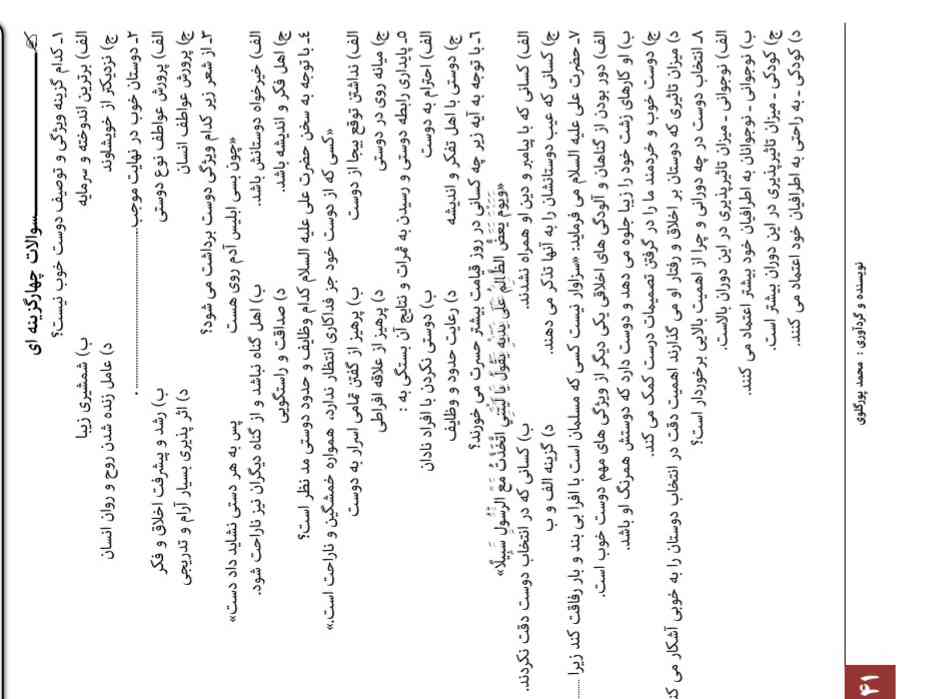 سوالات چهارگزینه ای
۱ـ کدام گزینه ویژگی و توصیف دوست خوب نیست؟
الف) برترین اندوخته و سرمایه ب) شمشیری زیبا
ج) نزدیکتر از خویشاوند د) عامل زنده شدن روح و روان انسان
۲ـ دوستان خوب در نهایت موجب ........................................ .
الف) پرورش عواطف نوع دوستی ب) رشد و پیشرفت اخلاق و فکر
ج) پرورش عواطف انسان د) اثر پذیری بسیار آرام و تدریجی
۳ـ از شعر زیر کدام ویژگی دوست برداشت می شود؟
«چون بسی ابلیس آدم روی هست پس به هر دستی نشاید داد دست»
الف) خیرخواه دوستانش باشد. ب) اهل گناه نباشد و از گناه دیگران نیز ناراحت شود.
ج) اهل فکر و اندیشه باشد. د) صداقت و راستگویی
۴ـ با توجه به سخن حضرت علی علیه السلام کدام وظایف و حدود دوستی مد نظر است؟
«کسی که از دوست خود جز فداکاری انتظار ندارد، همواره خمشگین و ناراحت است.»
الف) نداشتن توقع بیجا از دوست ب) پرهیز از گفتن تمامی اسرار به دوست
ج) میانه روی در دوستی د) پرهیز از علاقه افراطی
۵ـ پایداری رابطه دوستی و رسیدن به ثمرات و نتایج آن بستگی به :
الف) احترام به دوست ب) دوستی نکردن با افراد نادان
ج) دوستی با اهل تفکر و اندیشه د) رعایت حدود و وظایف
۶ـ با توجه به آیه زیر چه کسانی در روز قیامت بیشتر حسرت می خورند؟
«وَیَومَ یَعَضُّ الظّالِمُ عَلی یَدَیهِ یَقولُ یا لَیتَنِی اتَّخَذتُ مَعَ الرَّسولِ سَبیلًا»
الف) کسانی که با پیامبر و دین او همراه نشدند. ب) کسانی که در انتخاب دوست دقت نکردند.
ج) کسانی که عیب دوستانشان را به آنها تذکر می دهند. د) گزینه الف و ب
۷ـ حضرت علی علیه السلام می فرماید: «سزاوار نیست کسی که مسلمان است با افرا بی بند و بار رفاقت کند زیرا ..........
الف) دور بودن از گناهان و آلودگی های اخلاقی یکی دیگر از ویژگی های مهم دوست خوب است.
ب) او کارهای زشت خود را زیبا جلوه می دهد و دوست دارد که دوستش همرنگ او باشد.
ج) دوست خوب و خردمند ما را در گرفتن تصمیمات درست کمک می کند.
د) میزان تاثیری که دوستان بر اخلاق و رفتار او می گذارند اهمیت دقت در انتخاب دوستان را به خوبی آشکار می کند
۸ـ انتخاب دوست در چه دورانی و چرا از اهمیت بالایی برخوردار است؟
الف) نوجوانی - میزان تاثیرپذیری در این دوران بالاست.
ب) نوجوانی - نوجوانان به اطرافیان خود بیشتر اعتماد می کنند.
ج) کودکی - میزان تاثیرپذیری در این دوران بیشتر است.
د) کودکی - به راحتی به اطرافیان خود اعتماد می کنند.
نویسنده و گردآوری : محمد پورگلوی
۴۱